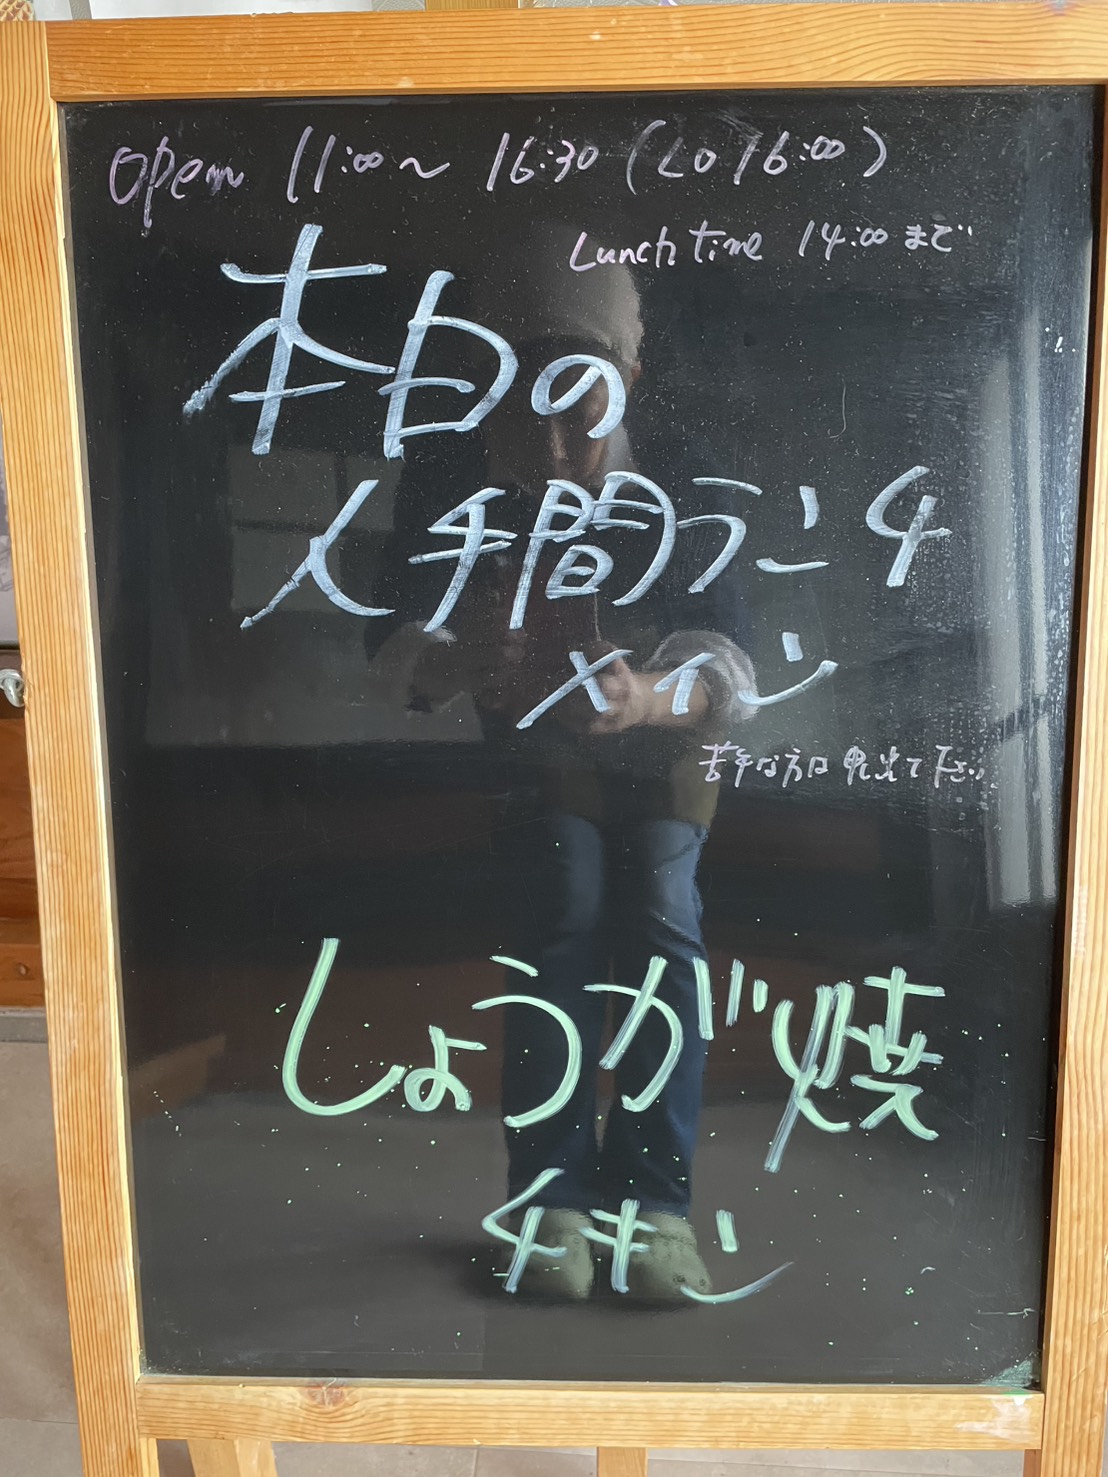 Open 11:00〜 16:30 (LO 16:00)
Lunch time 14:00 まで
本日の
人手間ランチ
メイン
苦手な方は申出て下さい
しょうが焼
チキン